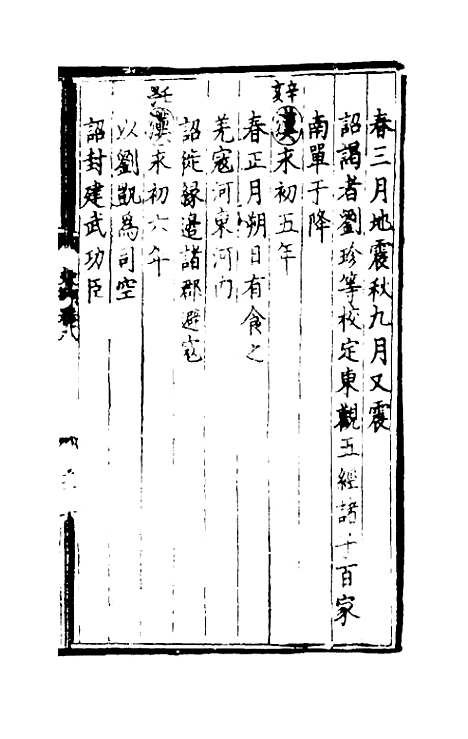 春三月地震秋九月又震
詔謁者劉珍等校定東觀五經諸十百家
南單于降
辛亥
漢永初五年
春正月朔日有食之
羌寇河東河內
詔徙緣邊諸郡避寇
漢永初六年
以劉凱為司空
詔封建武功臣